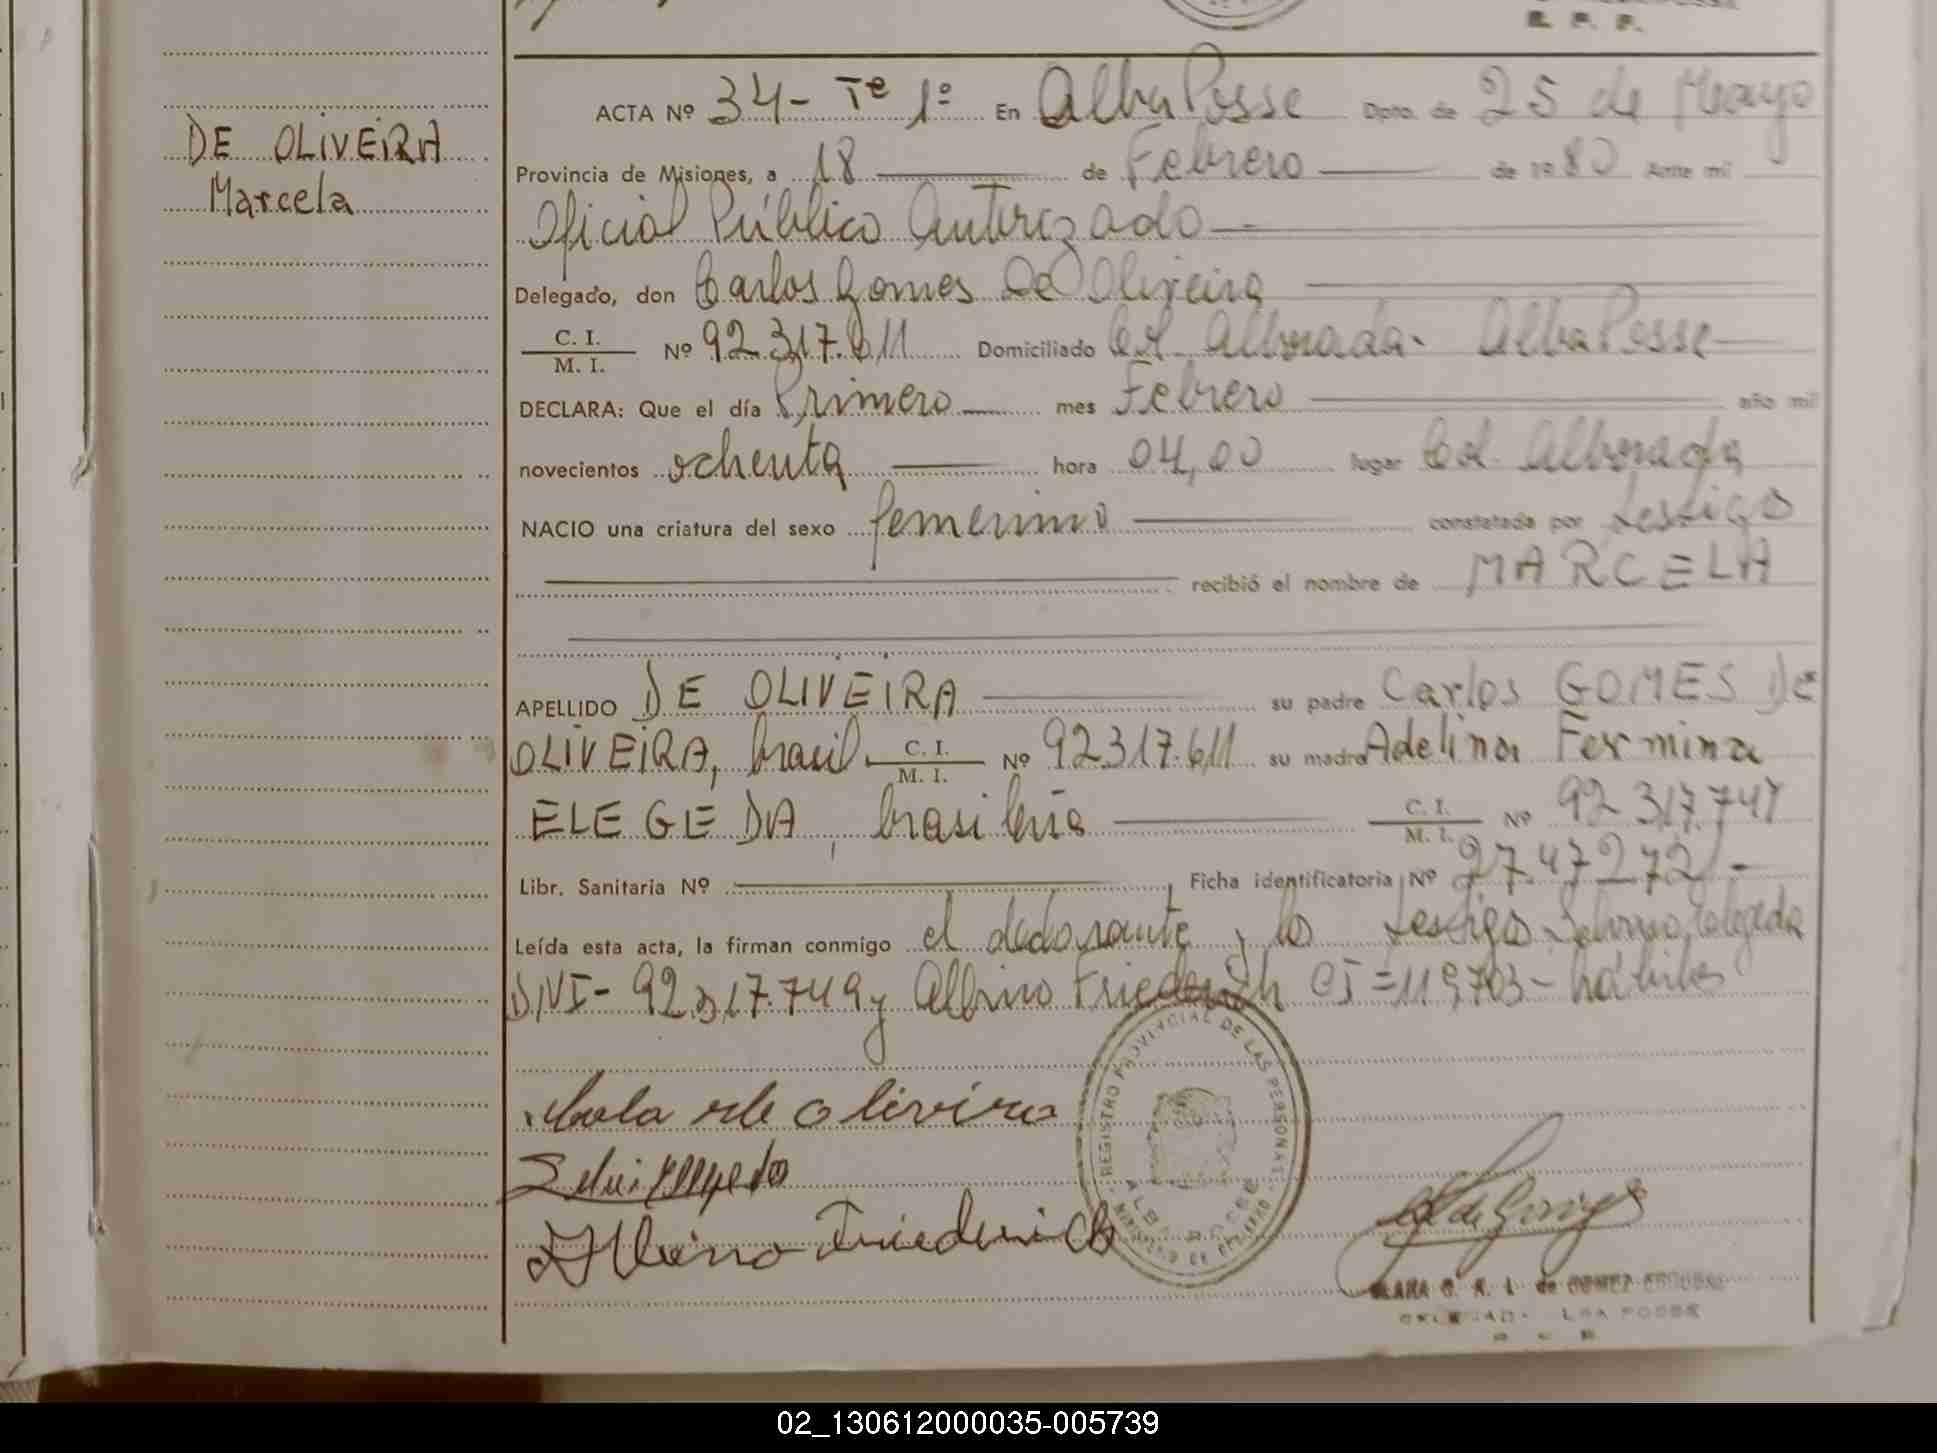 E. P. P.
DE OLIVEIRA
Marcela
ACTA Nº 34- Tº 1º En Alba Posse Dpto. de 25 de Mayo
Provincia de Misiones, a 18 de Febrero de 1980 Ante mí
Oficial Público Autorizado
Delegado, don Carlos Gomes De Oliveira
C. I. / M. I. Nº 92.317.611 Domiciliado Col. Alborada - Alba Posse
DECLARA: Que el día Primero mes Febrero año mil
novecientos ochenta hora 04,00 lugar Col. Alborada
NACIO una criatura del sexo femenino constatada por testigos
recibió el nombre de MARCELA
APELLIDO DE OLIVEIRA su padre Carlos GOMES De
OLIVEIRA, brasil. C. I. / M. I. Nº 92.317.611 su madre Adelina Fermina
ELEGEDA, brasileña C. I. / M. I. Nº 92.317.747
Libr. Sanitaria Nº , Ficha identificatoria Nº 27.47272 -
Leída esta acta, la firman conmigo el declarante y los testigos Elegeda
DNI- 92.317.749 y Albino Friederich CI = 119,703 - hábiles
de oliveira
Albino Friederich
REGISTRO PROVINCIAL DE LAS PERSONAS
ALBA POSSE
de GOMEZ
02_130612000035-005739